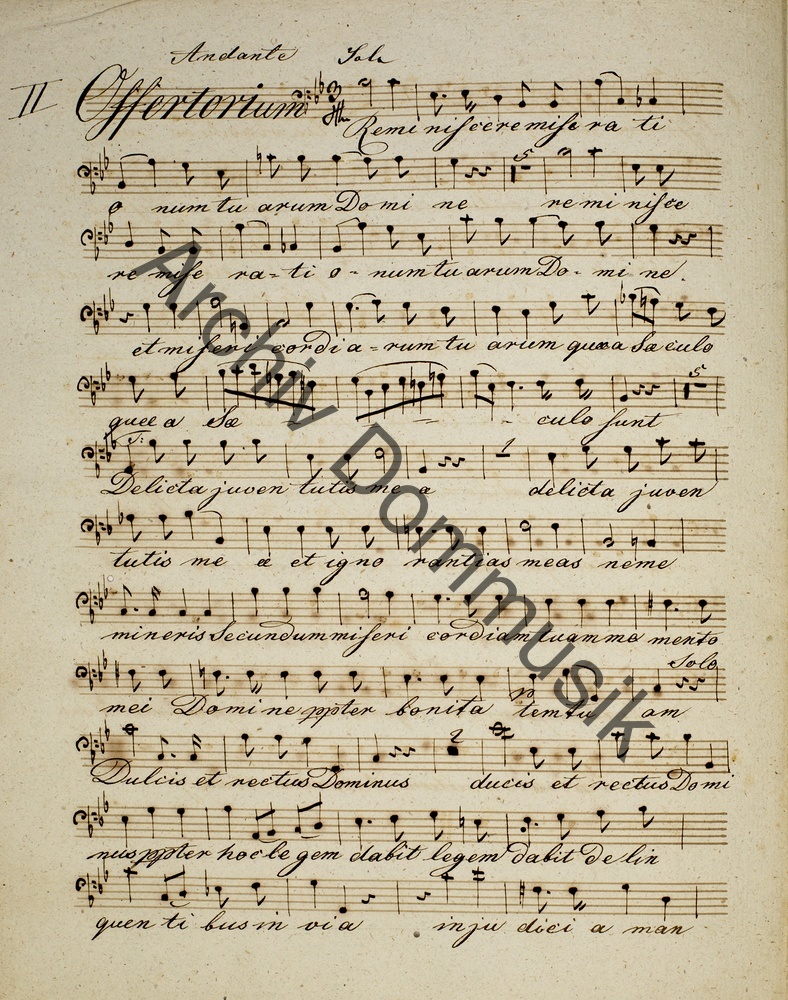 Andante Solo
II Offertorium
Remi nisceremise ra ti
o num tu arum Do mi ne re mi nisce
re mise ra = ti o - num tu arum Do - mi ne.
et miseri cordi a = rum tu arum quæ a Sæ culo
quæ a Sæ - - culo sunt
Delicta juven tutis me a delicta juven
tutis me æ et igno rantias meas neme
mineris Secundum miseri cordiam tuam me mento
Solo
mei Domine ppter bonita tem tu am
Dulcis et rectus Dominus ducis et rectus Domi
nus ppter hoc le gem dabit legem dabit de lin
quen ti bus in via in ju dici a man
Archiv Dommusik